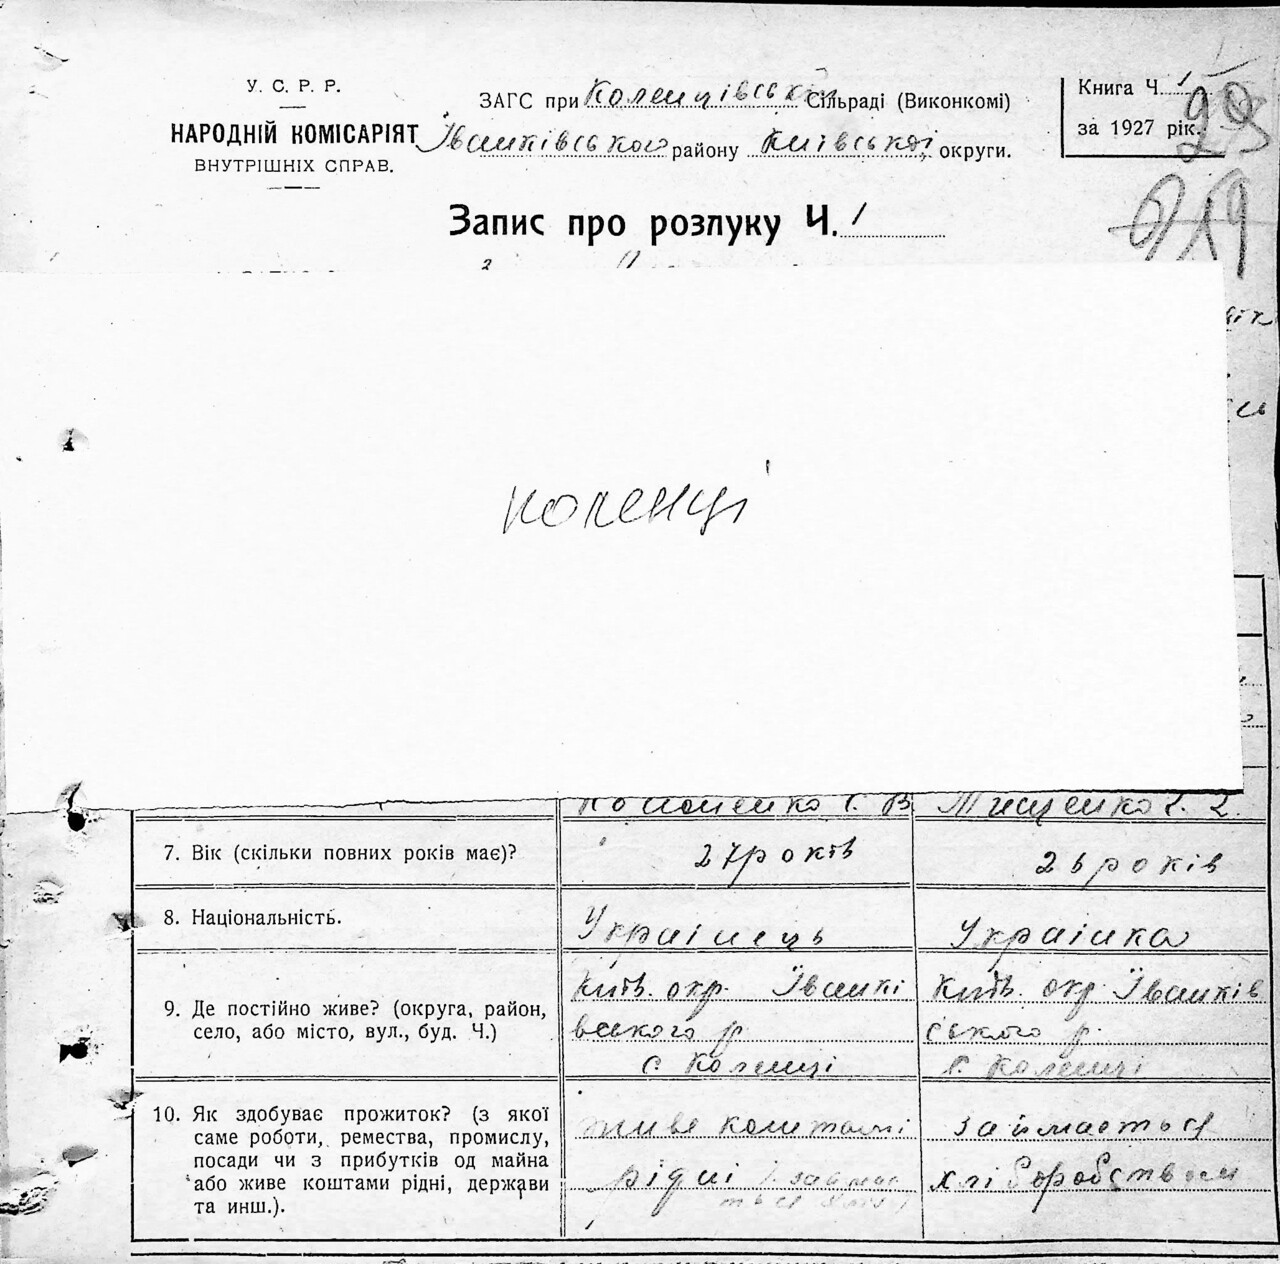 У. С. Р. Р.
НАРОДНІЙ КОМІСАРІЯТ
ВНУТРІШНІХ СПРАВ.
ЗАГС при Коленцівській Сільраді (Виконкомі)
Іванківського району Київської округи.
Книга Ч. 1
за 1927 рік.
Запис про розлуку Ч. 1
коленці
Тищенко
7. Вік (скільки повних років має)?
27 років
26 років
8. Національність.
Українець
Українка
9. Де постійно живе? (округа, район,
село, або місто, вул., буд. Ч.)
Київ. окр. Іванкі
вського р.
с. Коленці
Київ. окр. Іванків
ського р.
с. Коленці
10. Як здобуває прожиток? (з якої
саме роботи, ремества, промислу,
посади чи з прибутків од майна
або живе коштами рідні, держави
та инш.).
живе коштами
рідні
займається
хліборобством